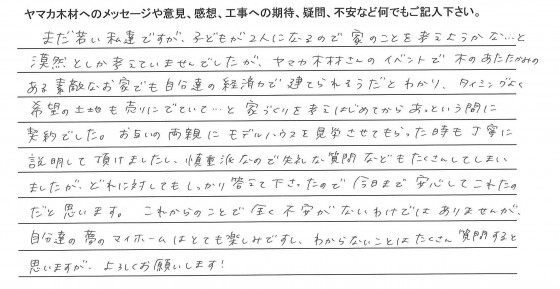 ヤマカ木材へのメッセージや意見、感想、工事への期待、疑問、不安など何でもご記入下さい。
まだ若い私達ですが、子どもが2人になるので家のことを考えようかな…と
漠然としか考えていませんでしたが、ヤマカ木材さんのイベントで木のあたたかみの
ある素敵なお家でも自分達の経済力で建てられそうだとわかり、タイミングよく
希望の土地も売りにでていて…と家づくりを考えはじめてからあっという間に
契約でした。お互いの両親にモデルハウスを見学させてもらった時も丁寧に
説明して頂けましたし、慎重派なので失礼な質問などもたくさんしてしまい
ましたが、どれに対してもしっかり答えて下さったので今日まで安心してこれたの
だと思います。これからのことで全く不安がないわけではありませんが、
自分達の夢のマイホームはとても楽しみですし、わからないことはたくさん質問すると
思いますが、よろしくお願いします!